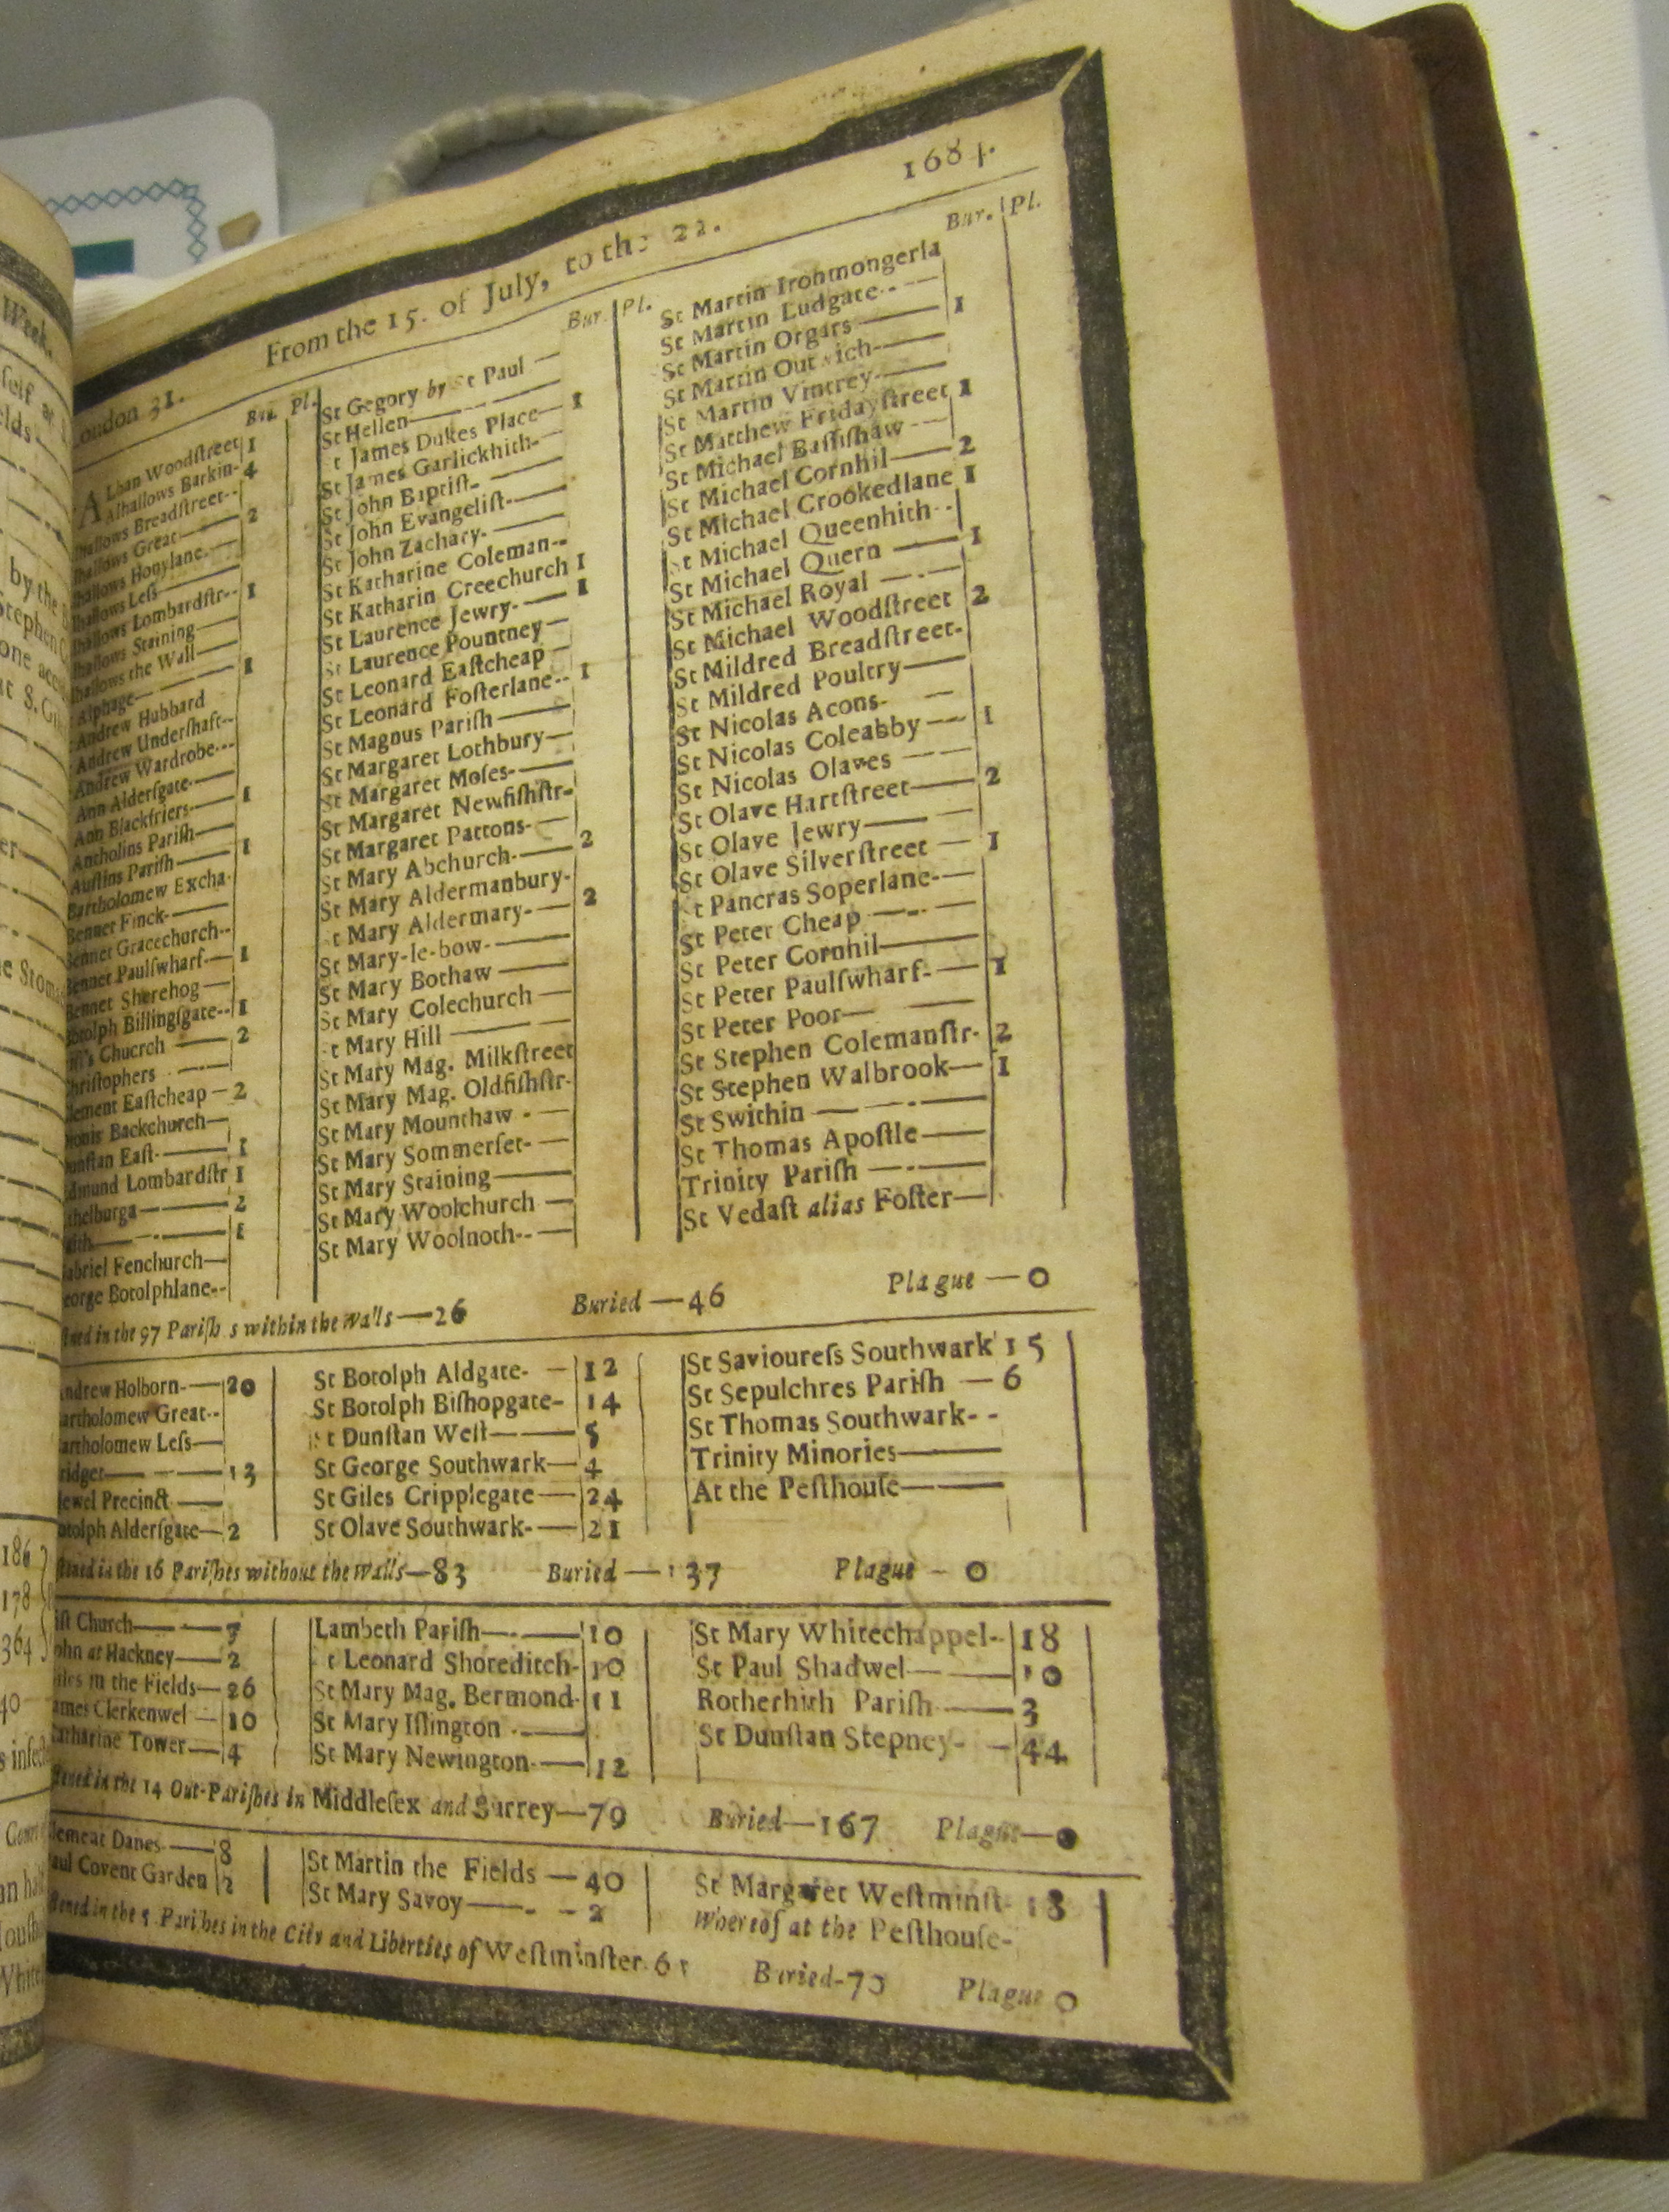 1684.
From the 15. of July, to the 22.
London 31.
Bur. Pl.
Alban Woodstreet 1
Alhallows Barkin- 4
lhallows Breadſtreet--
lhallows Great— 2
lhallows Honylane.—
lhallows Leſs—
lhallows Lombardſtr-- 1
lhallows Staining—
lhallows the Wall—
Alphage— 1
Andrew Hubbard
Andrew Underſhaft--
Andrew Wardrobe---
Ann Alderſgate-—
Ann Blackfriers-— 1
Antholins Pariſh—
Auſtins Pariſh— 1
Bartholomew Excha-
Bennet Finck-—
Bennet Gracechurch--
Bennet Paulſwharf— 1
Bennet Sherehog—
Botolph Billingſgate-- 1
Chucrch — 2
hriſtophers
lement Eaſtcheap — 2
ionis Backchurch—
unſtan Eaſt-— 1
dmund Lombardſtr 1
thelburga— 2
aith— 1
abriel Fenchurch—
eorge Botolphlane--
Bur. Pl.
St Gegory by St Paul —
St Hellen—
t James Dukes Place— 1
St James Garlickhith-
St John Baptiſt- —
St John Evangeliſt-—
St John Zachary- —
St Katharine Coleman--
St Katharin Creechurch 1
St Laurence Jewry-— 1
St Laurence Pountney—
St Leonard Eaſtcheap
St Leonard Foſterlane-- 1
St Magnus Pariſh —
St Margaret Lothbury—
St Margaret Moſes-—
St Margaret Newfiſhſtr-
St Margaret Pattons-—
St Mary Abchurch-— 2
St Mary Aldermanbury-
t Mary Aldermary-— 2
St Mary-le-bow-—
St Mary Bothaw —
St Mary Colechurch —
t Mary Hill —
St Mary Mag. Milkſtreet
St Mary Mag. Oldfiſhſtr-
St Mary Mounthaw - —
St Mary Sommerſet- —
St Mary Staining—
St Mary Woolchurch —
St Mary Woolnoth--—
Bur. Pl.
St Martin Ironmongerla
St Martin Ludgate--
St Martin Orgars— 1
St Martin Outwich—
St Martin Vintrey-—
St Matthew Fridayſtreet 1
St Michael Baſſiſhaw
St Michael Cornhil— 2
St Michael Crookedlane 1
t Michael Queenhith--
St Michael Quern — 1
St Michael Royal —
St Michael Woodſtreet 2
St Mildred Breadſtreet-
St Mildred Poultry—
St Nicolas Acons- —
St Nicolas Coleabby — 1
St Nicolas Olaves —
St Olave Hartſtreet— 2
St Olave Jewry—
St Olave Silverſtreet — 1
t Pancras Soperlane-—
St Peter Cheap —
St Peter Cornhil—
St Peter Paulſwharf-— 1
St Peter Poor—
St Stephen Colemanſtr- 2
St Stephen Walbrook— 1
St Swithin —
St Thomas Apoſtle—
Trinity Pariſh —
St Vedaſt alias Foſter—
ned in the 97 Pariſh s within the Walls—26 Buried —46 Plague —0
ndrew Holborn-—20
artholomew Great--
artholomew Leſs—
ridget—13
Precinct —
otolph Alderſgate—2
St Botolph Aldgate- — 12
St Botolph Biſhopgate- 14
t Dunſtan Weſt— 5
St George Southwark— 4
St Giles Cripplegate— 24
St Olave Southwark-— 21
St Savioureſs Southwark 15
St Sepulchres Pariſh — 6
St Thomas Southwark- -
Trinity Minories—
At the Peſthouſe—
ſtened in the 16 Pariſhes without the Walls—83 Buried —137 Plague - 0
iſt Church—7
ohn at Hackney—2
iles in the Fields—26
ames Clerkenwel — 10
atharine Tower— 4
Lambeth Pariſh— 10
t Leonard Shoreditch- 10
St Mary Mag. Bermond- 11
St Mary Iſlington -—
St Mary Newington-— 12
St Mary Whitechappel-- 18
St Paul Shadwel— 10
Rotherhith Pariſh— 3
St Dunſtan Stepney- — 44
ſtened in the 14 Out-Pariſhes in Middleſex and Surrey—79 Buried—167 Plague—0
lement Danes-— 8
aul Covent Garden 2
St Martin the Fields — 40
St Mary Savoy— 2
St Margaret Weſtminſt- 18
Whereof at the Peſthouſe-
ſtened in the 5 Pariſhes in the City and Liberties of Weſtminſter. 61 Buried-70 Plague 0